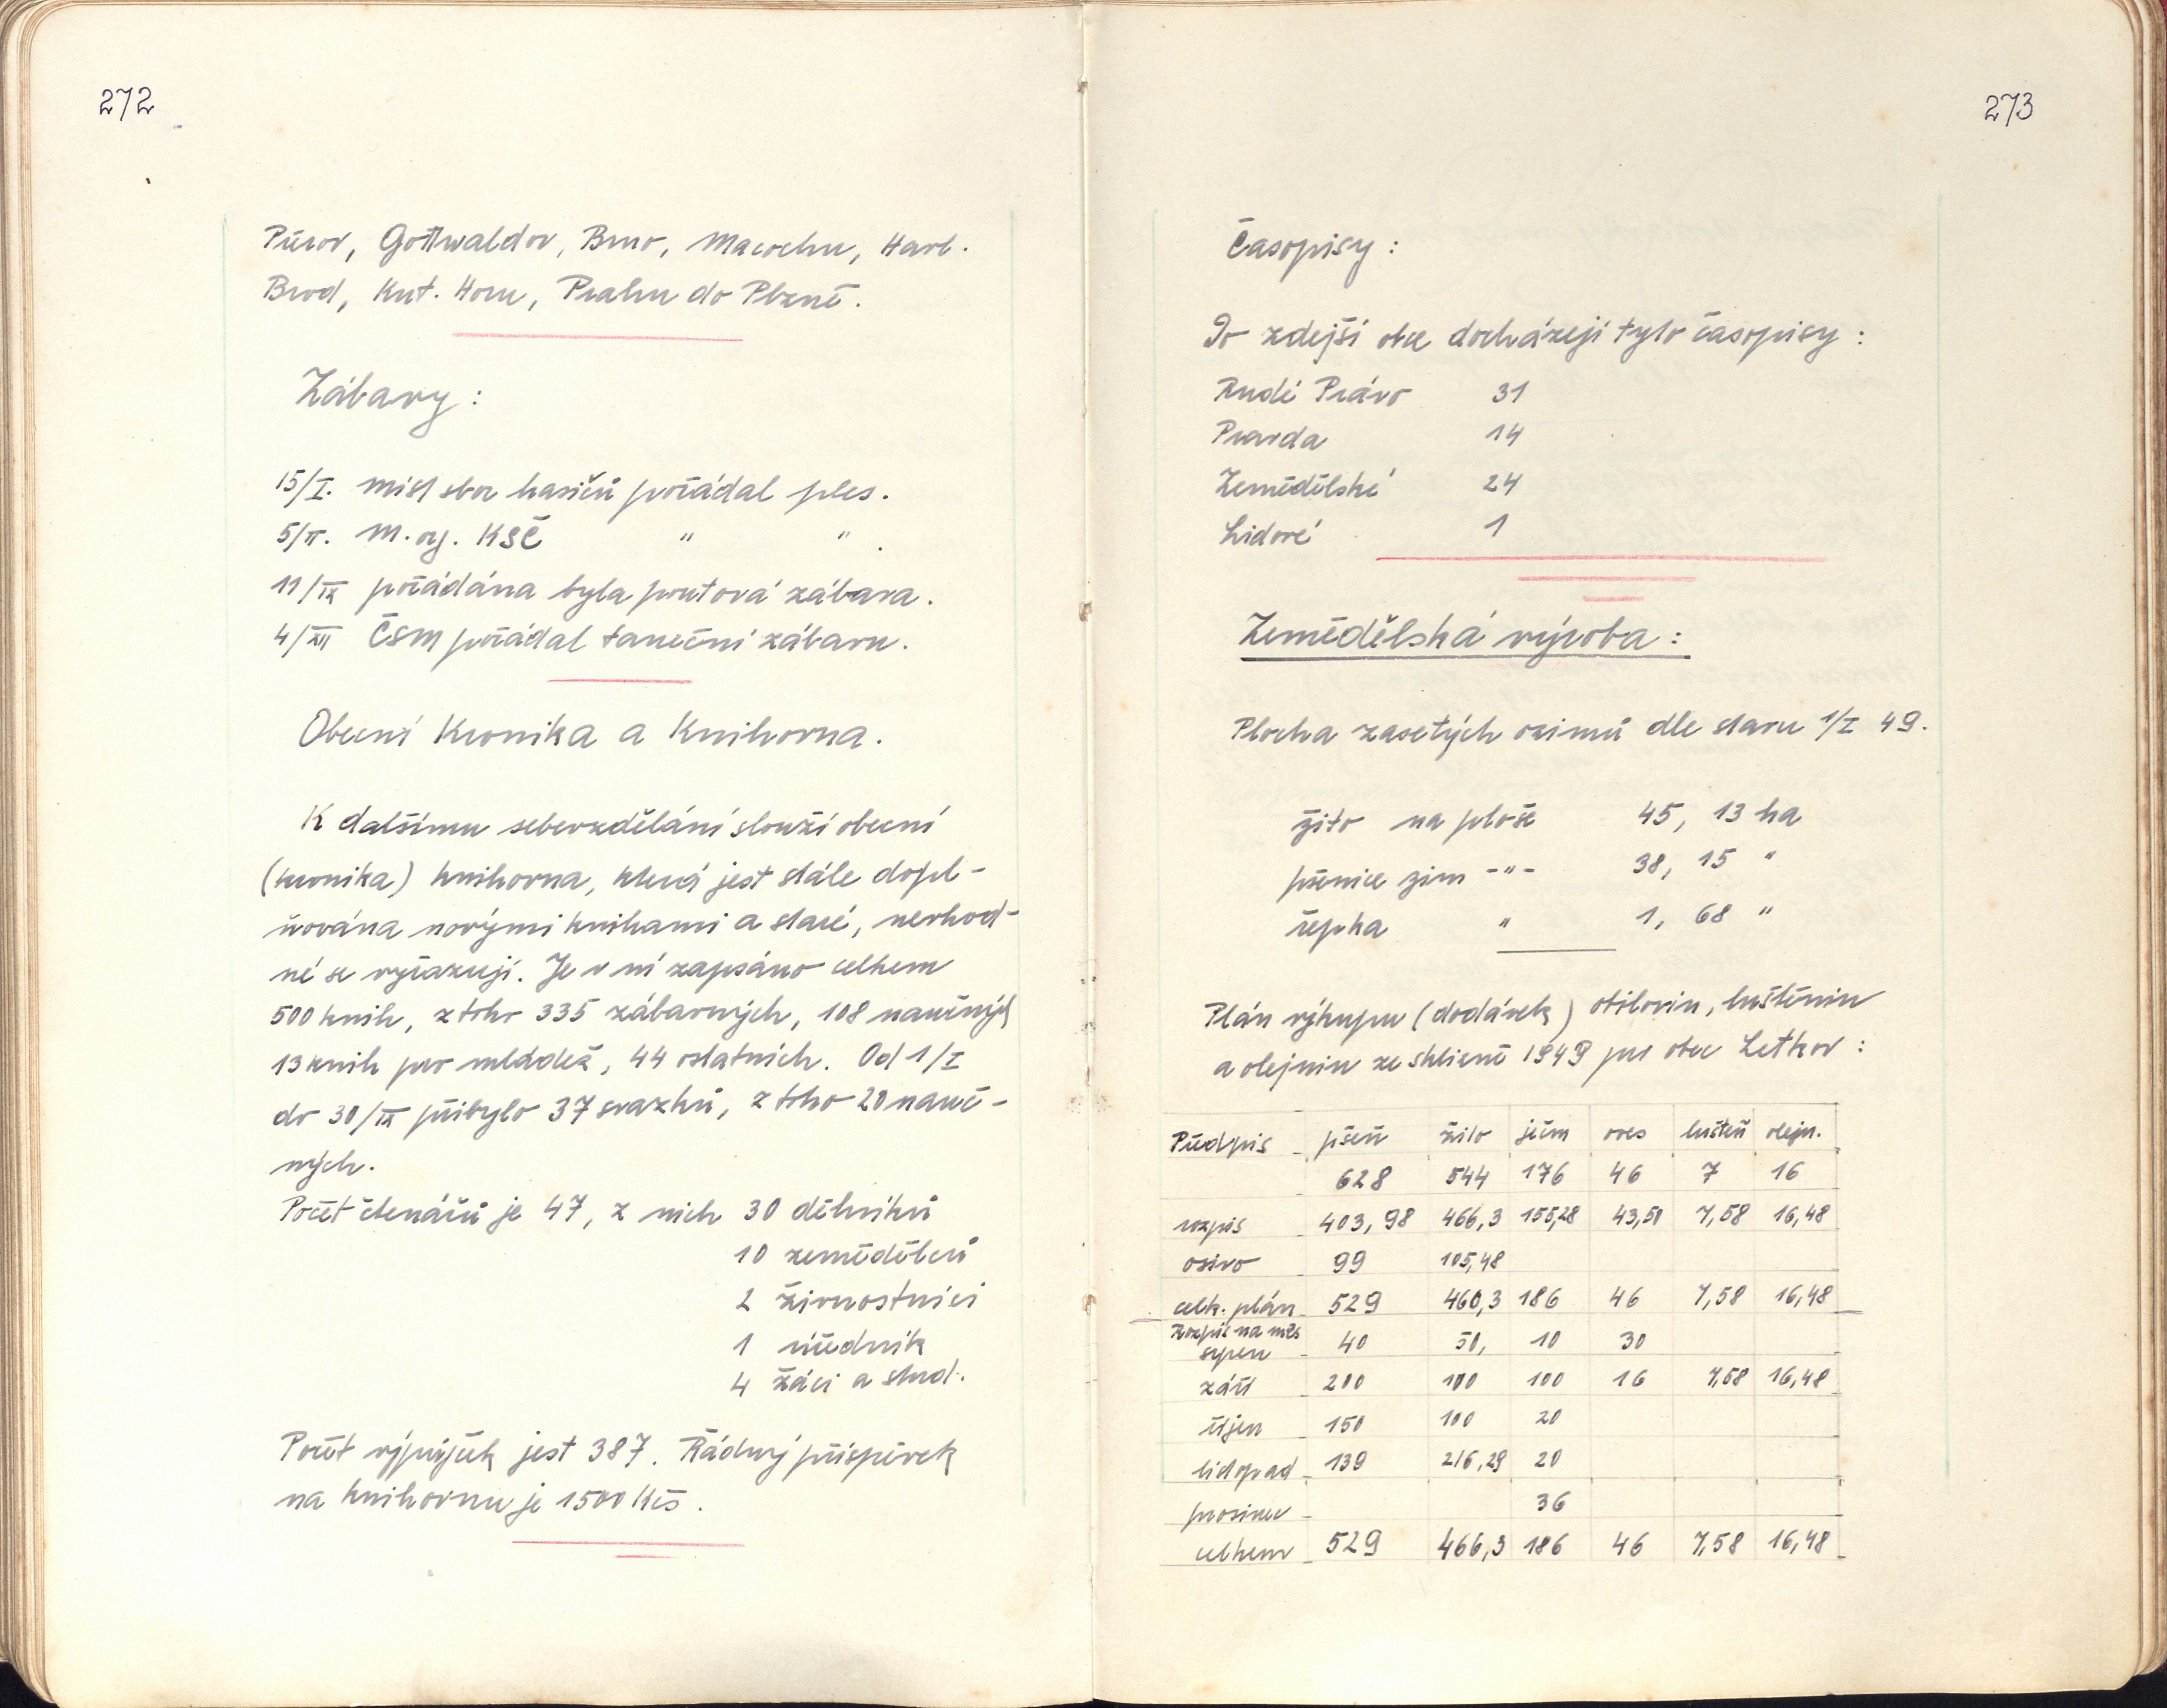 272
Přerov, Gottwaldov, Brno, Macochu, Havl.
Brod, Kut. Horu, Prahu do Plzně.
Zábavy:
15/I. míst sbor hasičů pořádal ples.
5/II. M. org. KSČ " " .
11/IX pořádána byla pouťová zábava.
4/XII ČSM pořádal taneční zábavu.
Obecní Kronika a Knihovna.
K dalšímu sebevzdělání slouží obecní
(kronika) knihovna, která jest stále dopl-
ňována novými knihami a staré, nevhod-
né se vyřazují. Je v ní zapsáno celkem
500 knih, z toho 335 zábavných, 108 naučných
13 knih pro mládež, 44 ostatních. Od 1/I
do 30/IX přibylo 37 svazků, z toho 20 nauč-
ných.
Počet čtenářů je 47, z nich 30 dělníků
10 zemědělců
2 živnostníci
1 úředník
4 žáci a stud.
Počet výpůjček jest 387. Řádný příspěvek
na knihovnu je 1500 Kčs.
273
Časopisy:
Do zdejší obce docházejí tyto časopisy:
Rudé Právo 31
Pravda 14
Zemědělské 24
Lidové 1
Zemědělská výroba:
Plocha zasetých ozimů dle stavu 1/I 49.
žito na ploše 45, 13 ha
pšenice zim -"- 38, 15 "
řepka " 1, 68 "
Plán výkupu (dodávek) obilovin, luštěnin
a olejnin ze sklizně 1949 pro obec Letkov:
Předpis pšen žito ječm oves luštěn olejn.
628 544 176 46 7 16
rozpis 403, 98 466,3 155,28 43,50 7,58 16,48
osivo 99 105,48
celk. plán 529 460,3 186 46 7,58 16,48
Rozpis na měs
srpen 40 50, 10 30
září 200 100 100 16 7,58 16,48
říjen 150 100 20
listopad 139 216,29 20
prosinec 36
celkem 529 466,3 186 46 7,58 16,48